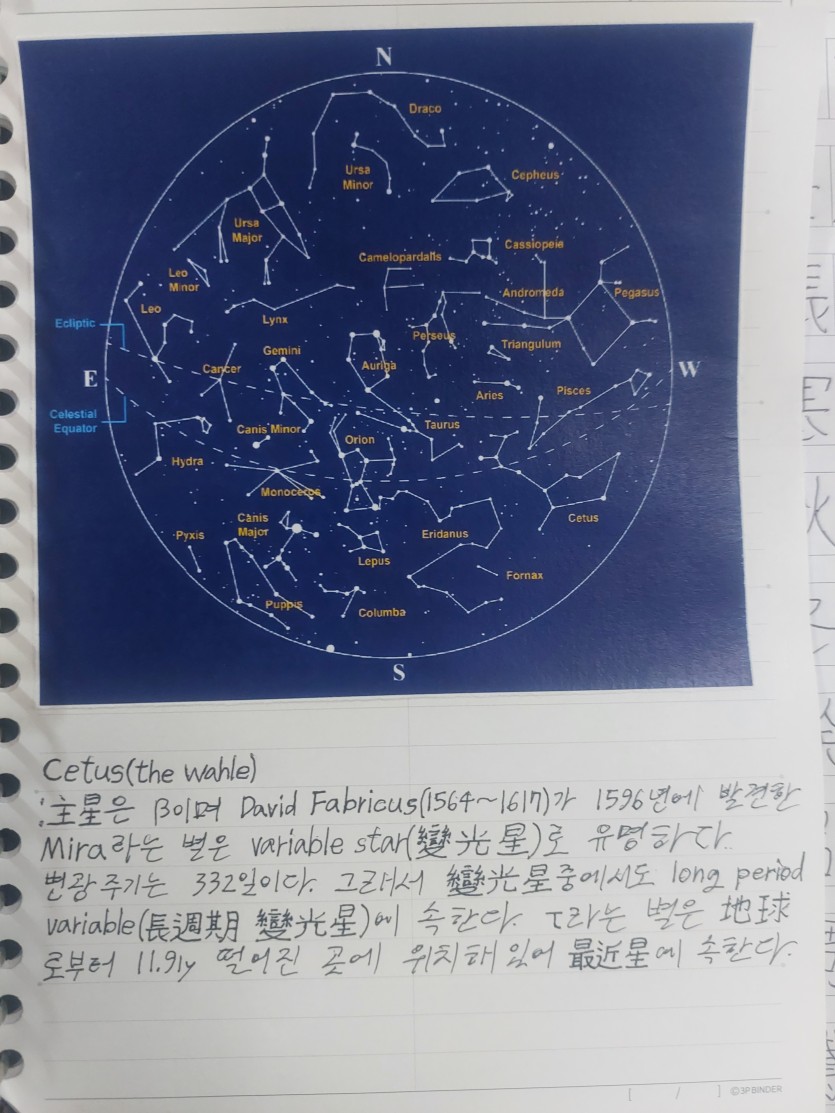 N
Draco
Ursa
Minor
Cepheus
Ursa
Major
Cassiopeia
Camelopardalis
Leo
Minor
Leo
Andromeda
Pegasus
Lynx
Ecliptic
Perseus
Triangulum
Gemini
Auriga
Cancer
E
W
Aries
Pisces
Celestial
Equator
Canis Minor
Taurus
Orion
Hydra
Monoceros
Canis
Major
Cetus
Pyxis
Eridanus
Lepus
Fornax
Puppis
Columba
S
Cetus(the wahle)
:主星은 β이며 David Fabricus(1564~1617)가 1596년에 발견한
Mira라는 별은 variable star(變光星)로 유명하다.
변광주기는 332일이다. 그래서 變光星중에서도 long period
variable(長週期 變光星)에 속한다. τ라는 별은 地球
로부터 11.9ly 떨어진 곳에 위치해 있어 最近星에 속한다.
[ / ] ©3P BINDER